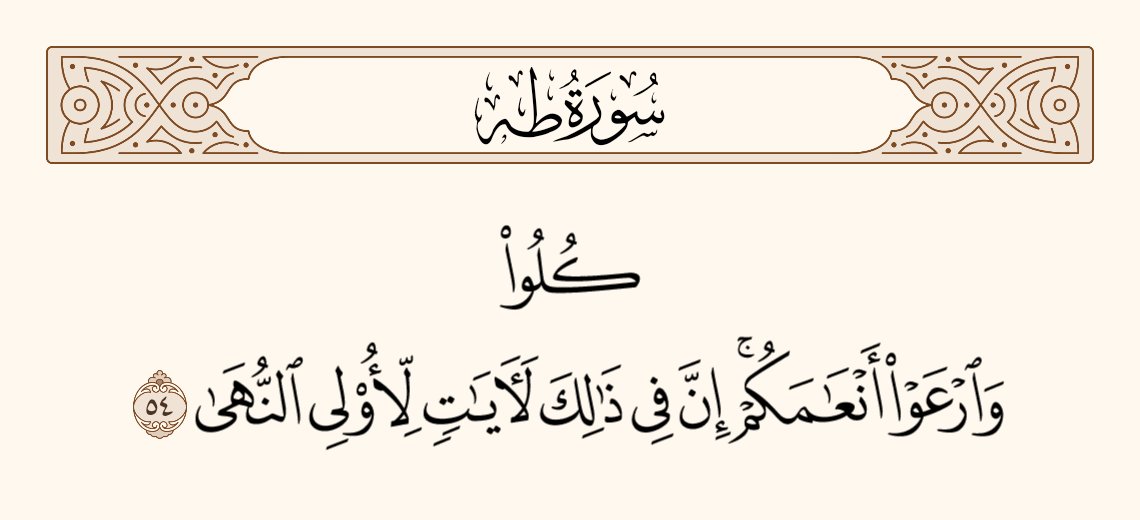 سُورَةُ طه
كُلُوا۟
وَٱرْعَوْا۟ أَنْعَـٰمَكُمْ ۗ إِنَّ فِى ذَٰلِكَ لَـَٔايَـٰتٍ لِّأُو۟لِى ٱلنُّهَىٰ ٥٤